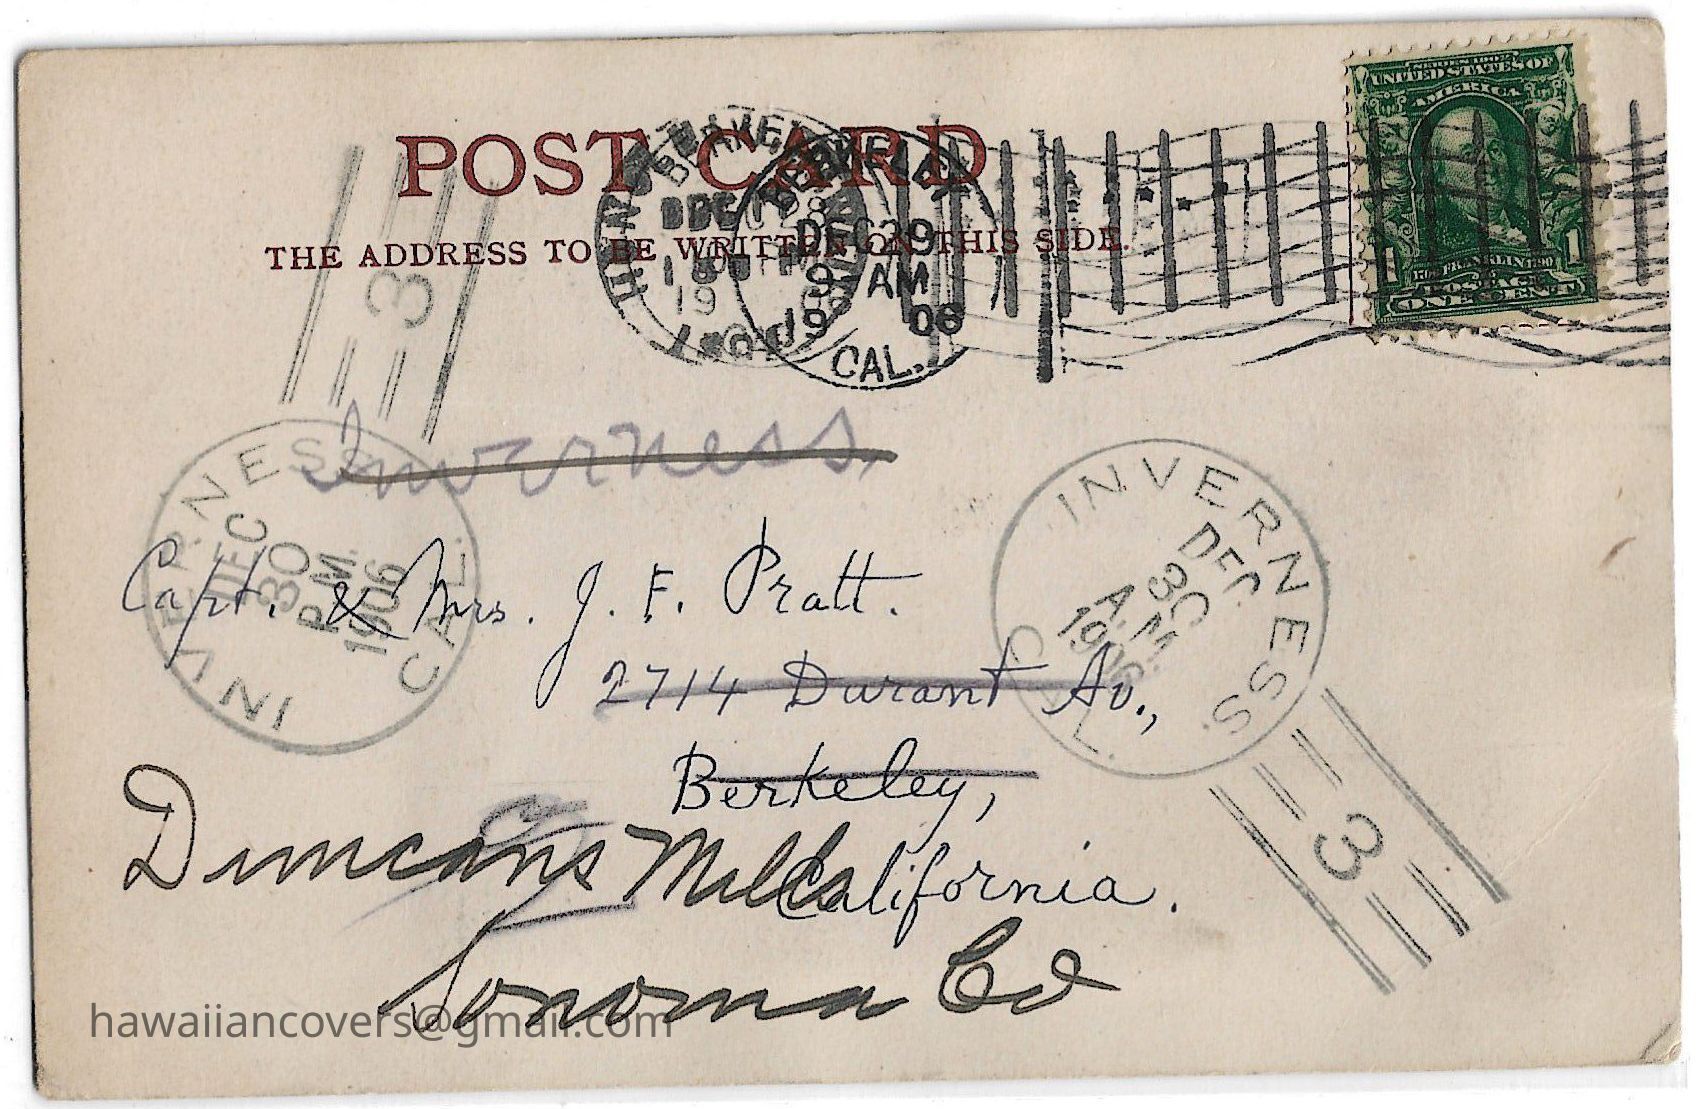 POST CARD
THE ADDRESS TO BE WRITTEN ON THIS SIDE.
SERIES 1902
UNITED STATES OF
AMERICA
1 1
FRANKLIN
POSTAGE
ONE CENT
DEC 29
9 AM
19 06
CAL.
3
INVERNESS CAL.
DEC
30
P.M.
1906
Inverness,
INVERNESS. CAL.
DEC
30
A.M.
1906
3
Capt. & Mrs. J. F. Pratt.
2714 Durant Av.,
Berkeley,
California.
Duncans Mills
Sonoma Co
hawaiiancovers@gmail.com